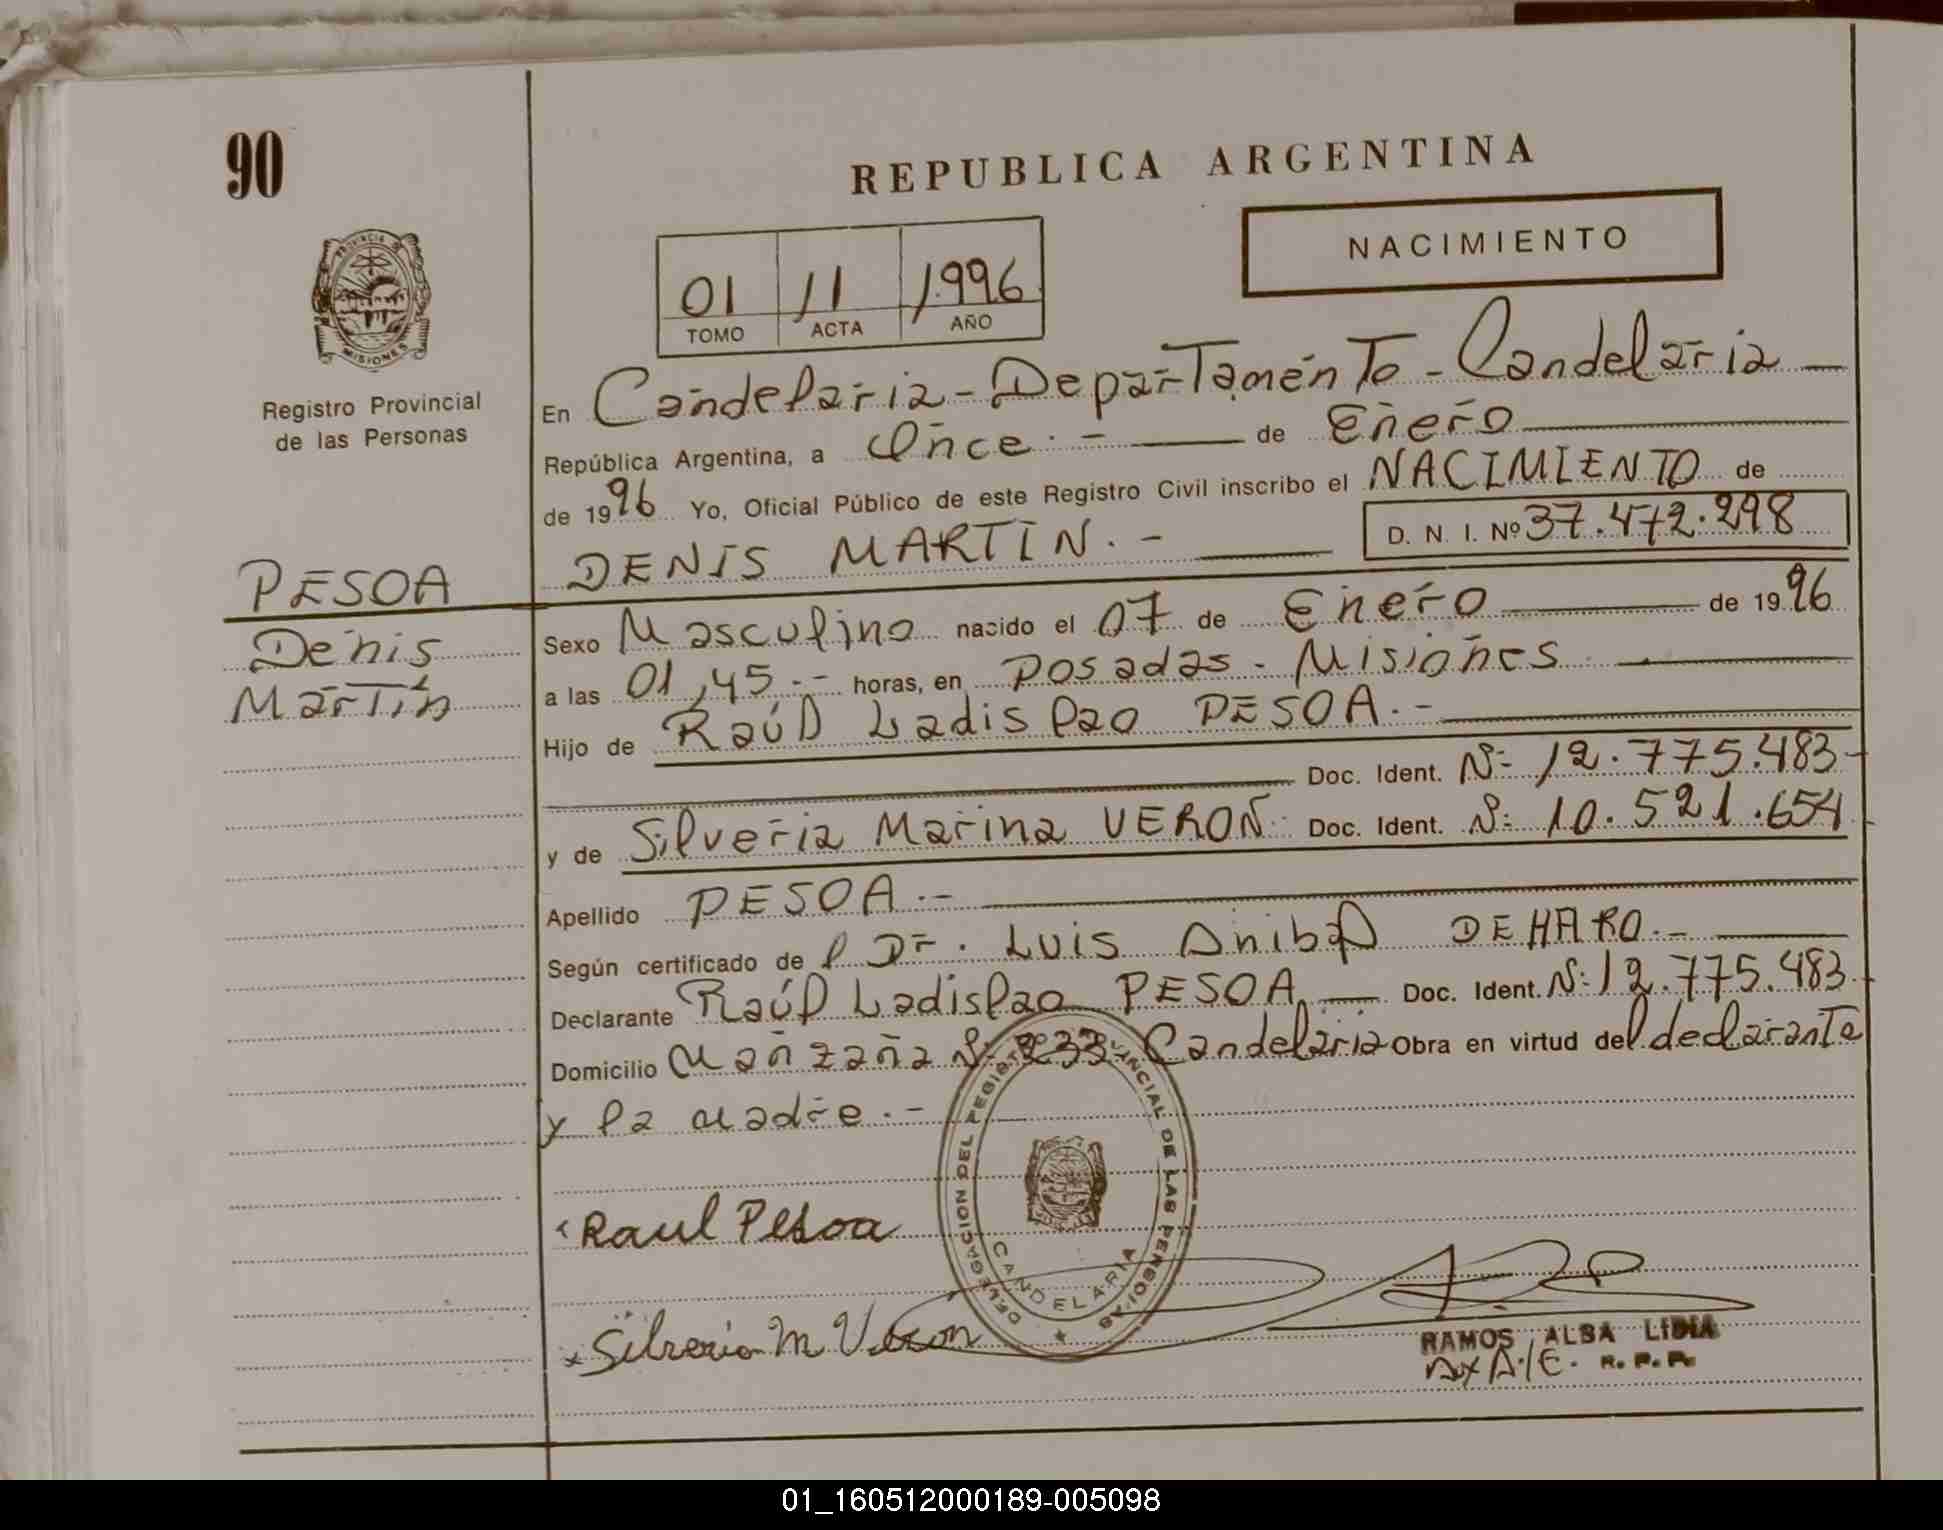 90
REPUBLICA ARGENTINA
NACIMIENTO
01 11 1996
TOMO ACTA AÑO
PROVINCIA DE
MISIONES
Registro Provincial
de las Personas
En Candelaria - Departamento - Candelaria —
República Argentina, a Once.- — de Enero
de 1996 Yo, Oficial Público de este Registro Civil inscribo el NACIMIENTO de
DENIS MARTIN.- — D. N. I. Nº 37.472.298
PESOA
Denis
Martín
Sexo Masculino nacido el 07 de Enero — de 1996
a las 01,45.- horas, en Posadas - Misiones —
Hijo de Raúl Ladislao PESOA.-
Doc. Ident. Nº 12.775.483-
y de Silveria Marina VERON Doc. Ident. Nº 10.521.654
Apellido PESOA.-
Según certificado del Dr. Luis Anibal DEHARO.-
Declarante Raúl Ladislao PESOA — Doc. Ident. Nº 12.775.483-
Domicilio Manzana Nº 233 - Candelaria Obra en virtud del declarante
y la madre.-
DELEGACION DEL REGISTRO PROVINCIAL DE LAS PERSONAS
CANDELARIA
Raul Pesoa
x Silveria M Veron
RAMOS, ALBA LIDIA
R. P. P.
01_160512000189-005098